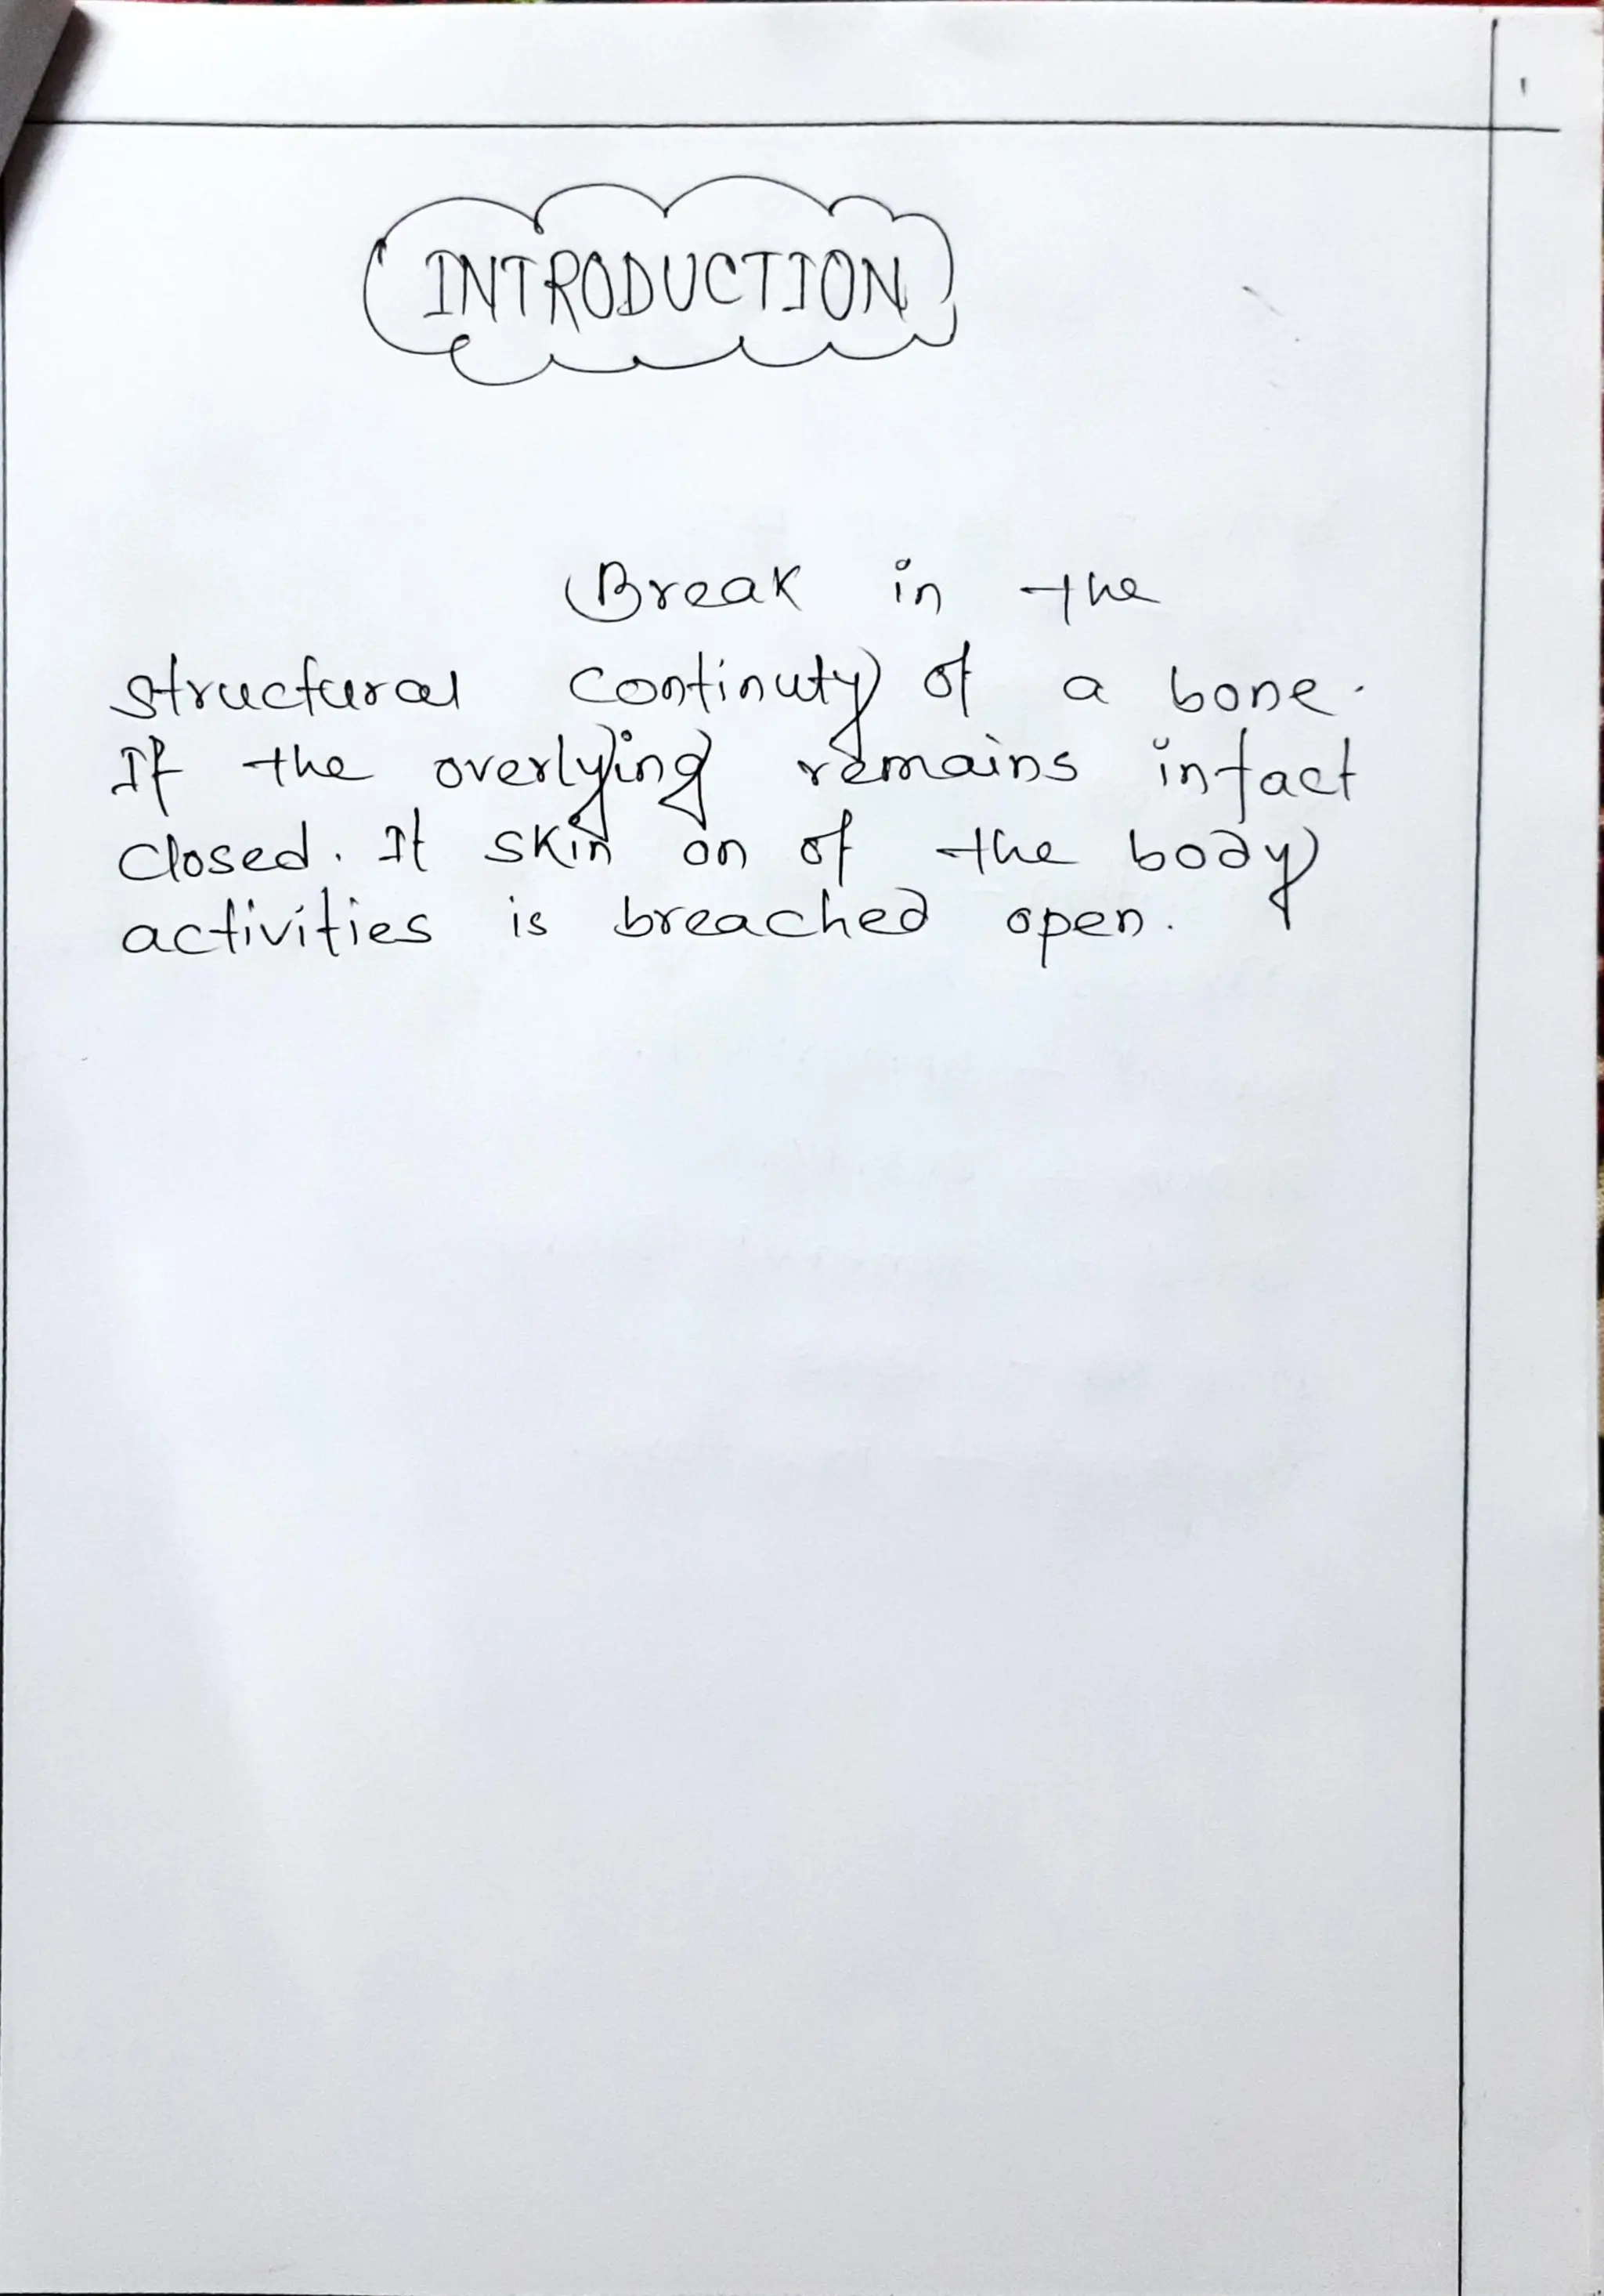 1
INTRODUCTION
Break in the
structural continuty of a bone.
If the overlying remains intact
closed. It skin on of the body
activities is breached open.